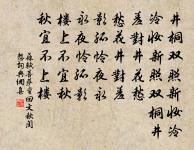 井桐双照新妝冷
冷妝新照双桐井
羞對井花愁
愁花井對羞
影孤怜夜永
永夜怜孤影
楼上不宜秋
秋宜不上楼
蘇軾菩薩蠻回文秋閨
怨詞典調集